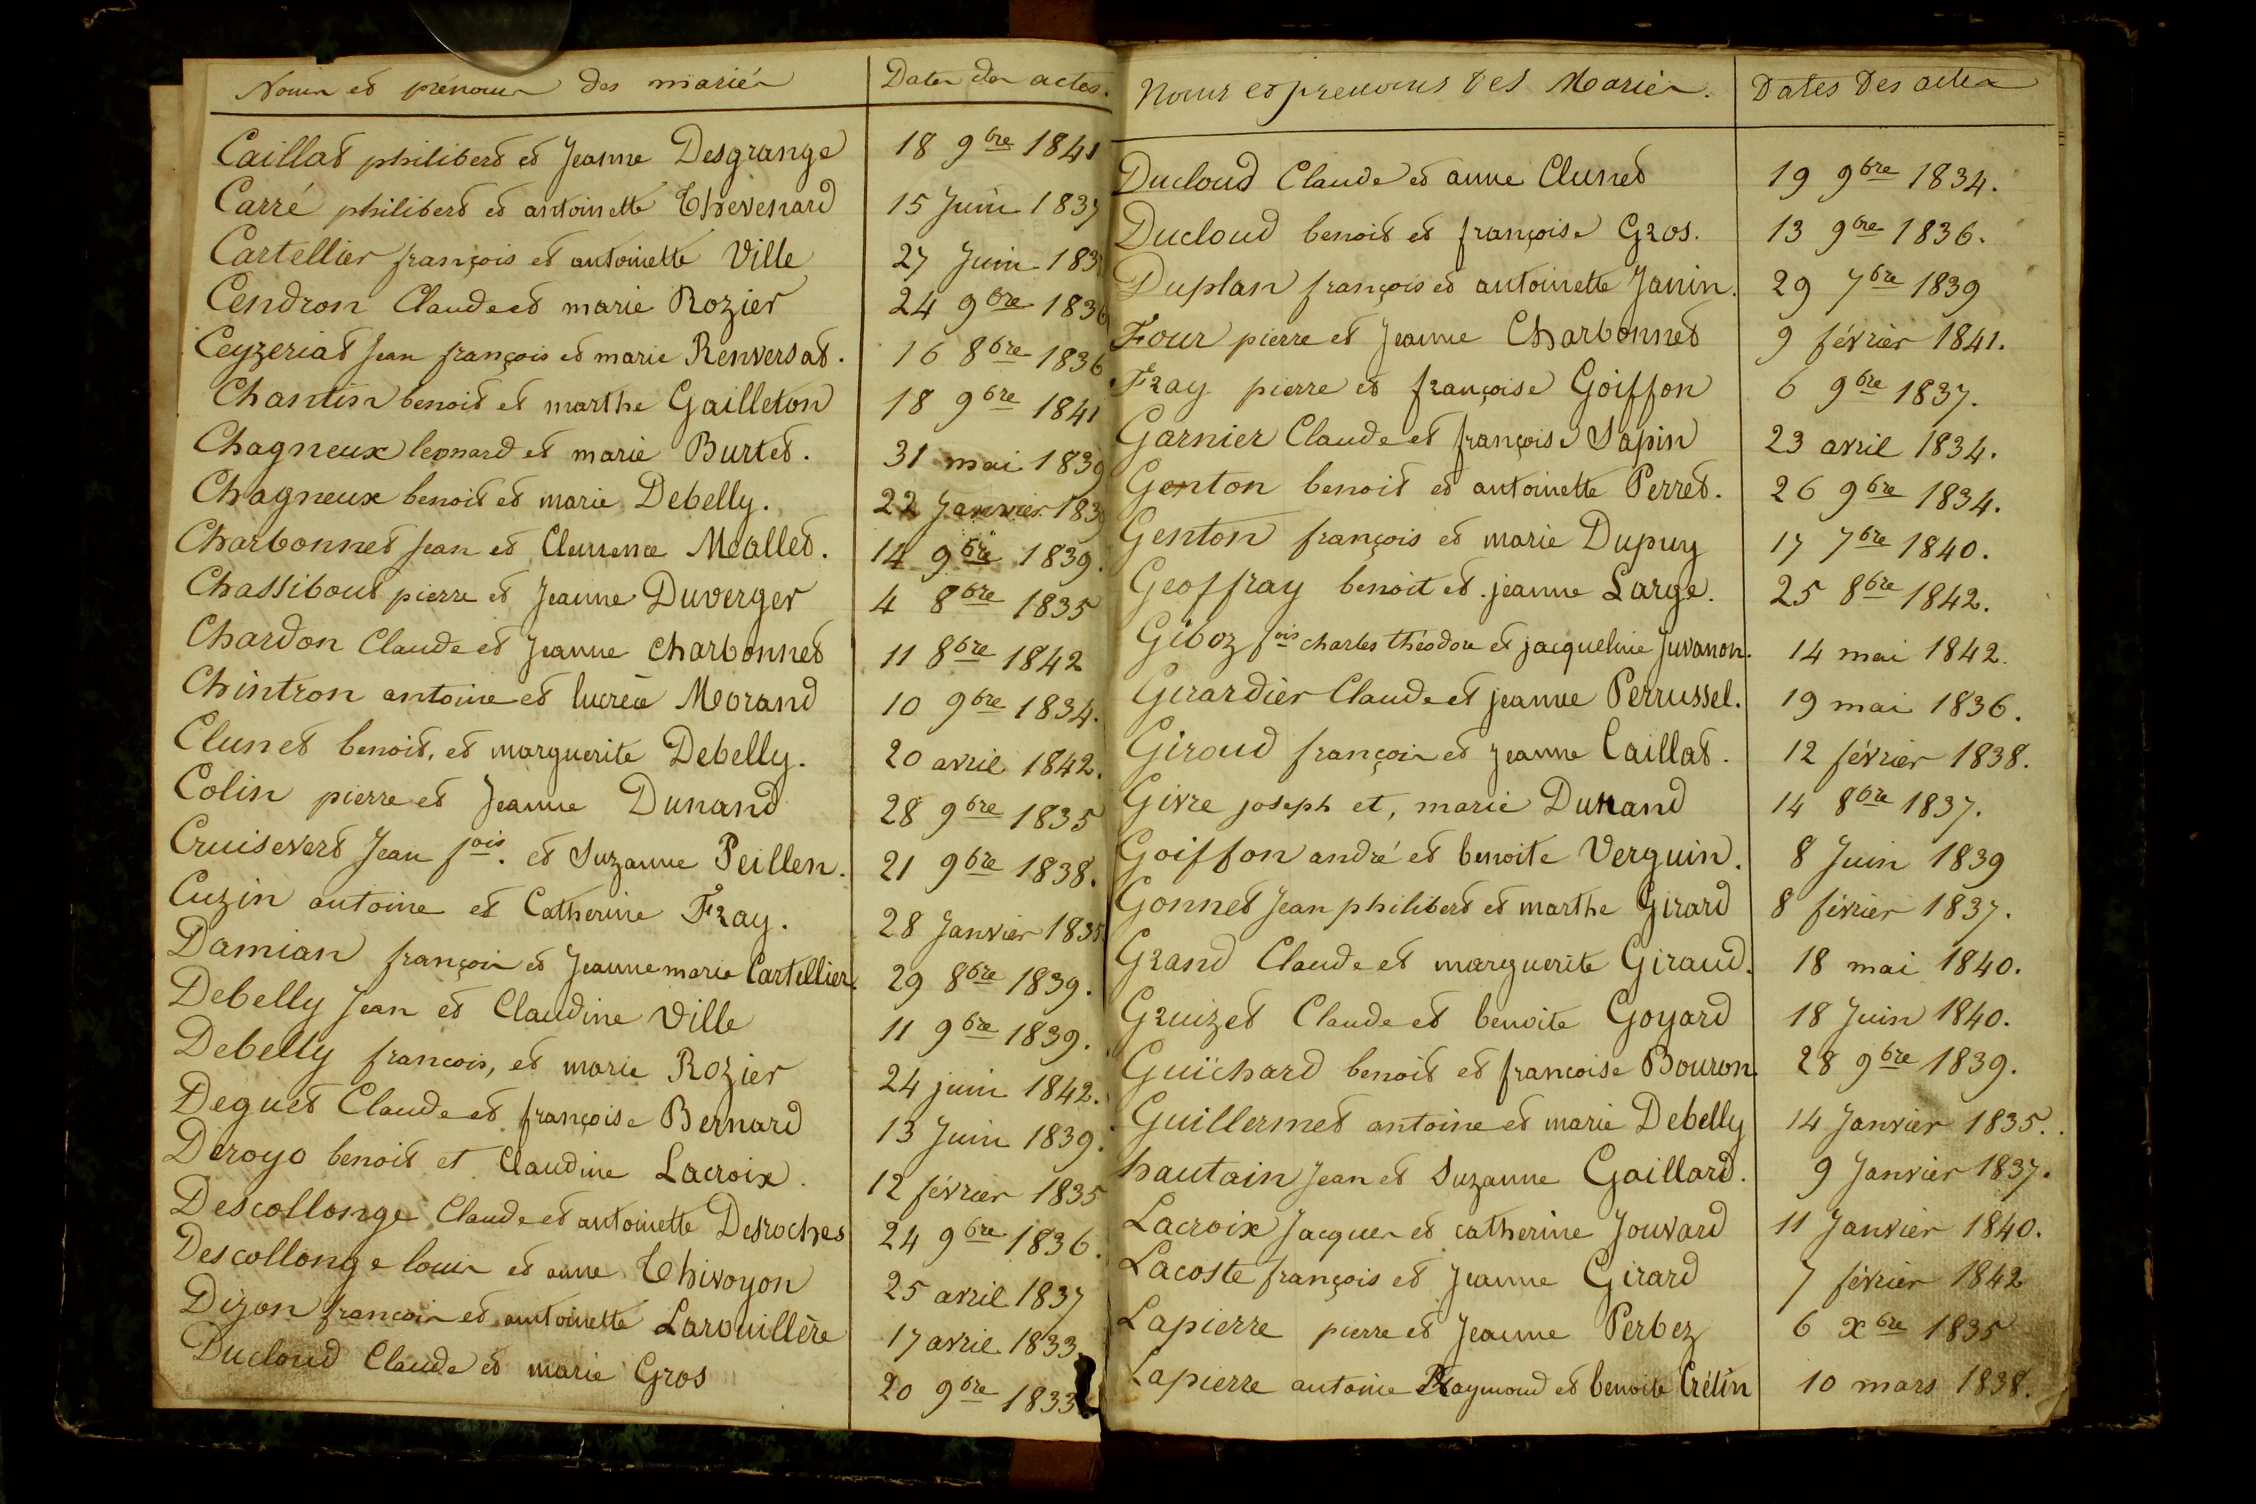 Noms et prénoms des mariés
Dates des actes.
Caillat philibert et Jeanne Desgrange 18 9bre 1841
Carré philibert et antoinette Thevenard 15 Juin 1837
Cartellier françois et antoinette Ville 27 Juin 183
Cendron Claude et marie Rozier 24 9bre 1836
Ceyzeriat Jean françois et marie Renversat. 16 8bre 1836
Chantin benoit et marthe Gailleton 18 9bre 1841
Chagneux leonard et marie Burtet. 31 mai 1839
Chagneux benoit et marie Debelly. 22 Janvier 183
Charbonnet Jean et Clemence Meallet. 14 9bre 1839.
Chassibout pierre et Jeanne Duverger 4 8bre 1835
Chardon Claude et Jeanne Charbonnet 11 8bre 1842
Chintron antoine et lucrèce Morand 10 9bre 1834.
Clunet benoit, et marguerite Debelly. 20 avril 1842.
Colin pierre et Jeanne Dunand 28 9bre 1835
Cruisevert Jean fois. et Suzanne Peillen. 21 9bre 1838.
Cuzin antoine et Catherine Fray. 28 Janvier 1835
Damian françois et Jeanne marie Cartellier. 29 8bre 1839.
Debelly Jean et Claudine Ville 11 9bre 1839.
Debelly francois, et marie Rozier 24 juin 1842.
Deguet Claude et françoise Bernard 13 Juin 1839.
Deroyo benoit et Claudine Lacroix. 12 février 1835
Descollonge Claude et antoinette Desroches 24 9bre 1836.
Descollonge louis et anne Thivoyon 25 avril 1837
Dizon francois et antoinette Larouillère 17 avril 1833
Ducloud Claude et marie Gros 20 9bre 1833
Noms et prenoms des Mariés.
Dates des actes
Ducloud Claude et anne Clunet 19 9bre 1834.
Ducloud benoit et françoise Gros. 13 9bre 1836.
Duplan françois et antoinette Janin. 29 7bre 1839
Four pierre et Jeanne Charbonnet 9 février 1841.
Fray pierre et françoise Goiffon 6 9bre 1837.
Garnier Claude et françoise Sapin 23 avril 1834.
Genton benoit et antoinette Perret. 26 9bre 1834.
Genton françois et marie Dupuy 17 7bre 1840.
Geoffray benoit et jeanne Large. 25 8bre 1842.
Giboz fois charles théodore et jacqueline Juvanon. 14 mai 1842.
Girardier Claude et jeanne Perrussel. 19 mai 1836.
Giroud françois et Jeanne Caillat. 12 février 1838.
Givre joseph et, marie Dunand 14 8bre 1837.
Goiffon andré et benoite Verguin. 8 Juin 1839
Gonnet Jean philibert et marthe Girard 8 février 1837.
Grand Claude et marguerite Giraud. 18 mai 1840.
Gruizet Claude et benoite Goyard 18 Juin 1840.
Guïchard benoit et francoise Bouron 28 9bre 1839.
Guillermet antoine et marie Debelly 14 Janvier 1835.
hautain Jean et Suzanne Gaillard. 9 Janvier 1837.
Lacroix Jacques et catherine Jouvard 11 Janvier 1840.
Lacoste françois et Jeanne Girard 7 février 1842
Lapierre pierre et Jeanne Perbez 6 xbre 1835
Lapierre antoine Raymond et benoite Crétin 10 mars 1838.